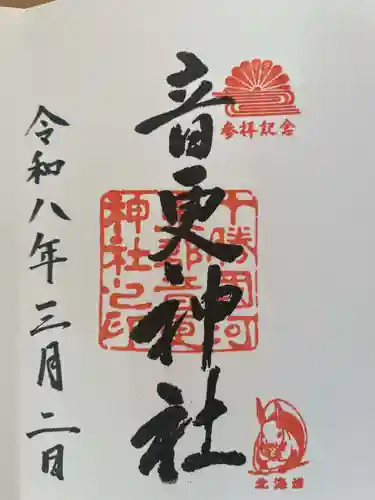 参拝記念
音更神社
十勝國河
神社之印
北海道
令和八年三月二日